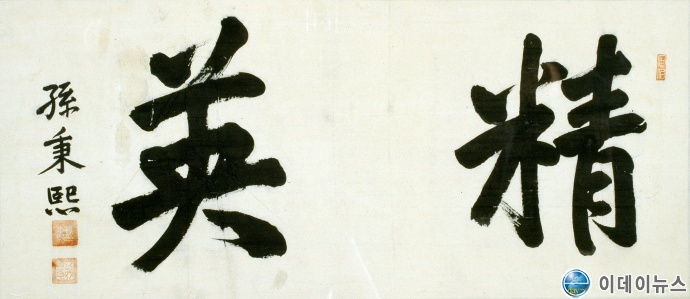 精英
孫秉熙
이데이뉴스